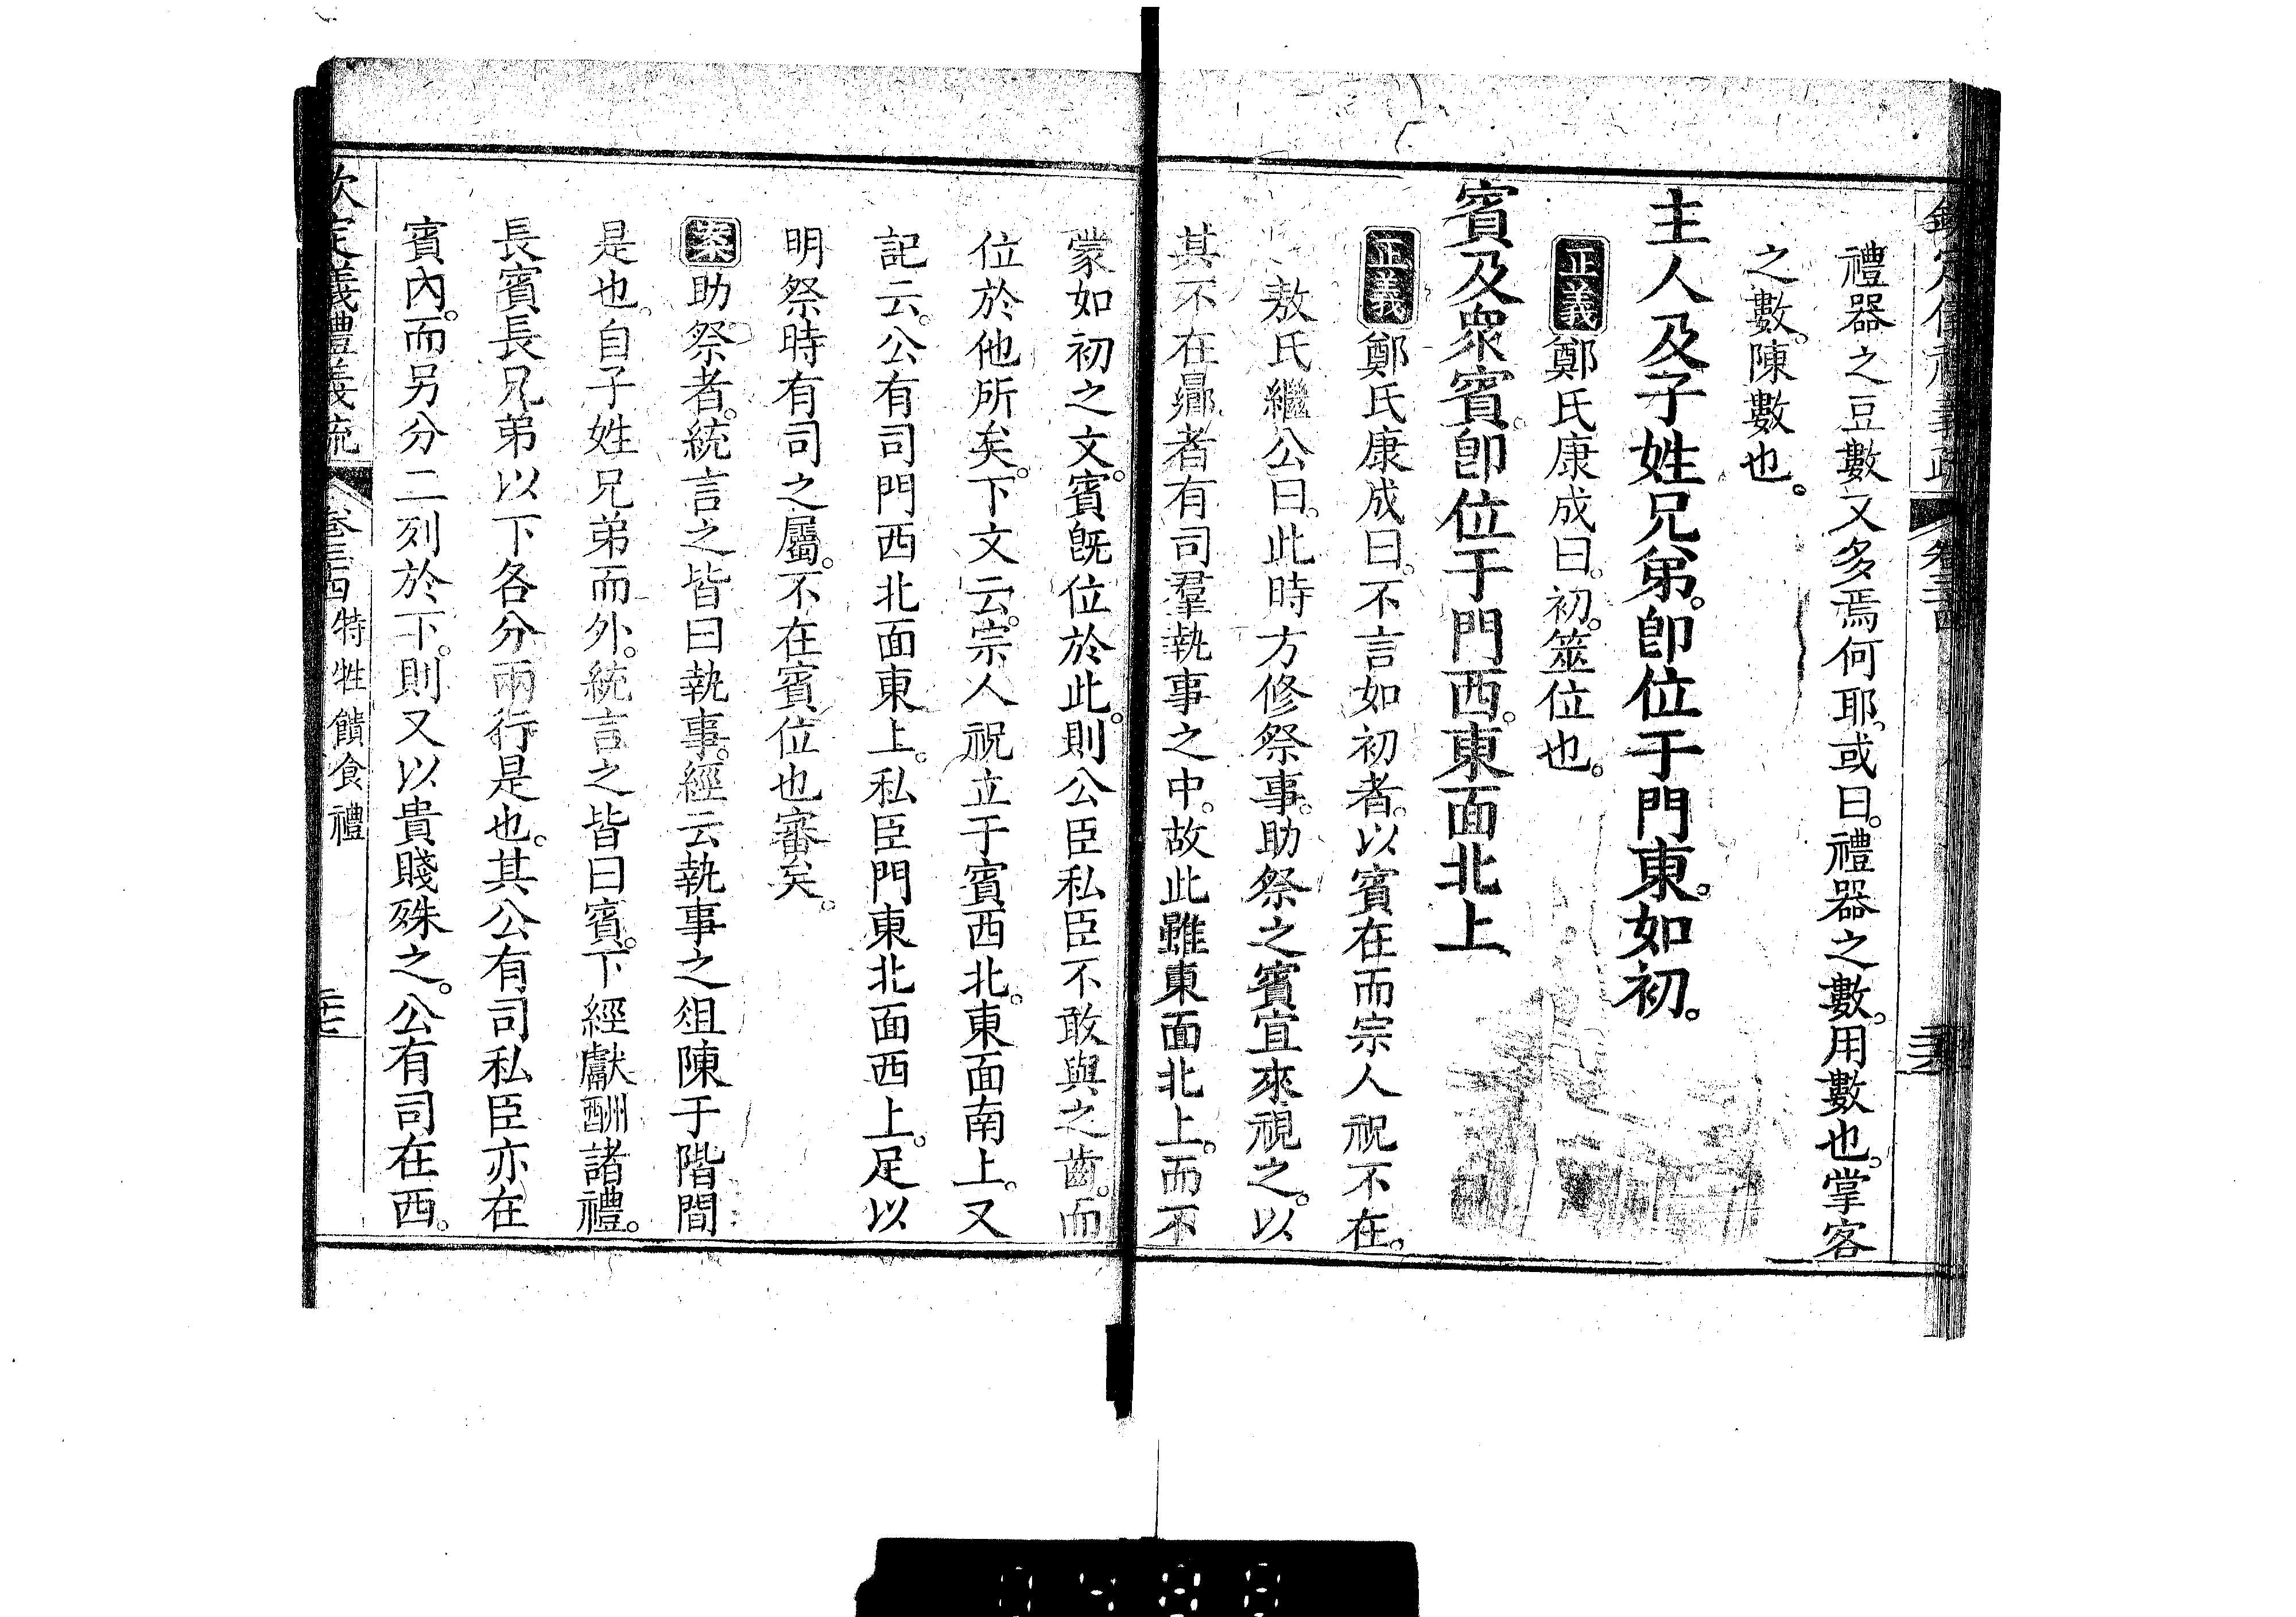 禮器之豆數又多焉何耶。或曰。禮器之數。用數也。掌客
之數。陳數也。
主人及子姓兄弟。卽位于門東。如初。
正義鄭氏康成曰。初。筮位也。
賓及衆賓。卽位于門西。東面北上
正義鄭氏康成曰。不言如初者。以賓在而宗人祝不在。
敖氏繼公曰。此時方修祭事。助祭之賓宜來視之。以
其不在鼏者有司羣執事之中。故此雖東面北上。而不
蒙如初之文。賓旣位於此。則公臣私臣不敢與之齒。而
位於他所矣。下文云。宗人祝立于賓西北。東面南上。又
記云。公有司門西北面東上。私臣門東北面西上。足以
明祭時有司之屬。不在賓位也審矣。
案助祭者。統言之皆曰執事。經云執事之俎陳于階間
是也。自子姓兄弟而外。統言之皆曰賓。下經獻酬諸禮。
長賓長兄弟以下各分兩行是也。其公有司私臣亦在
賓內。而另分二列於下。則又以貴賤殊之。公有司在西。
欽定儀禮義疏 卷三四特牲饋食禮